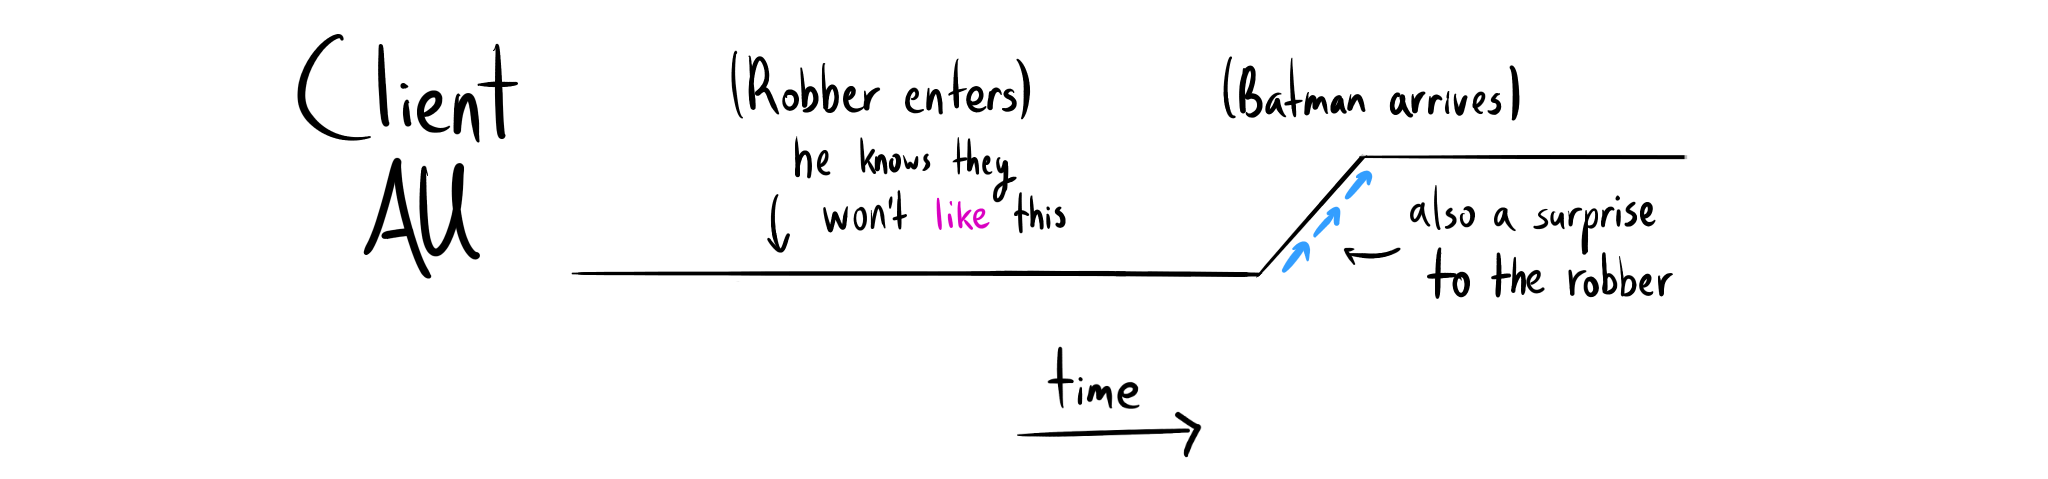 Client
AU
(Robber enters)
he knows they
won't like this
(Batman arrives)
also a surprise
to the robber
time